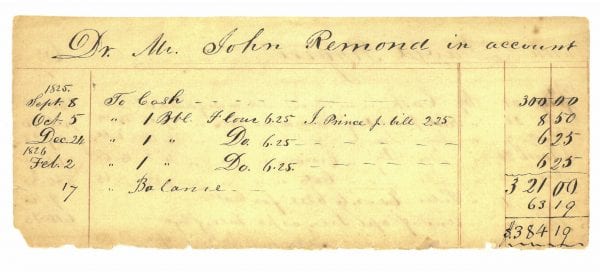 Dr. Mr. John Remond in account
1825.
Sept. 8 To Cash - - - - 300 00
Oct. 5 " 1 Bbl. Flour 6.25 J. Prince p. bill 2.25 8 50
Dec. 24 " 1 " Do. 6.25 - - - 6 25
1826
Feb. 2 " 1 " Do. 6.25. - - - 6 25
321 00
17 " Balance - - 63 19
$384 19